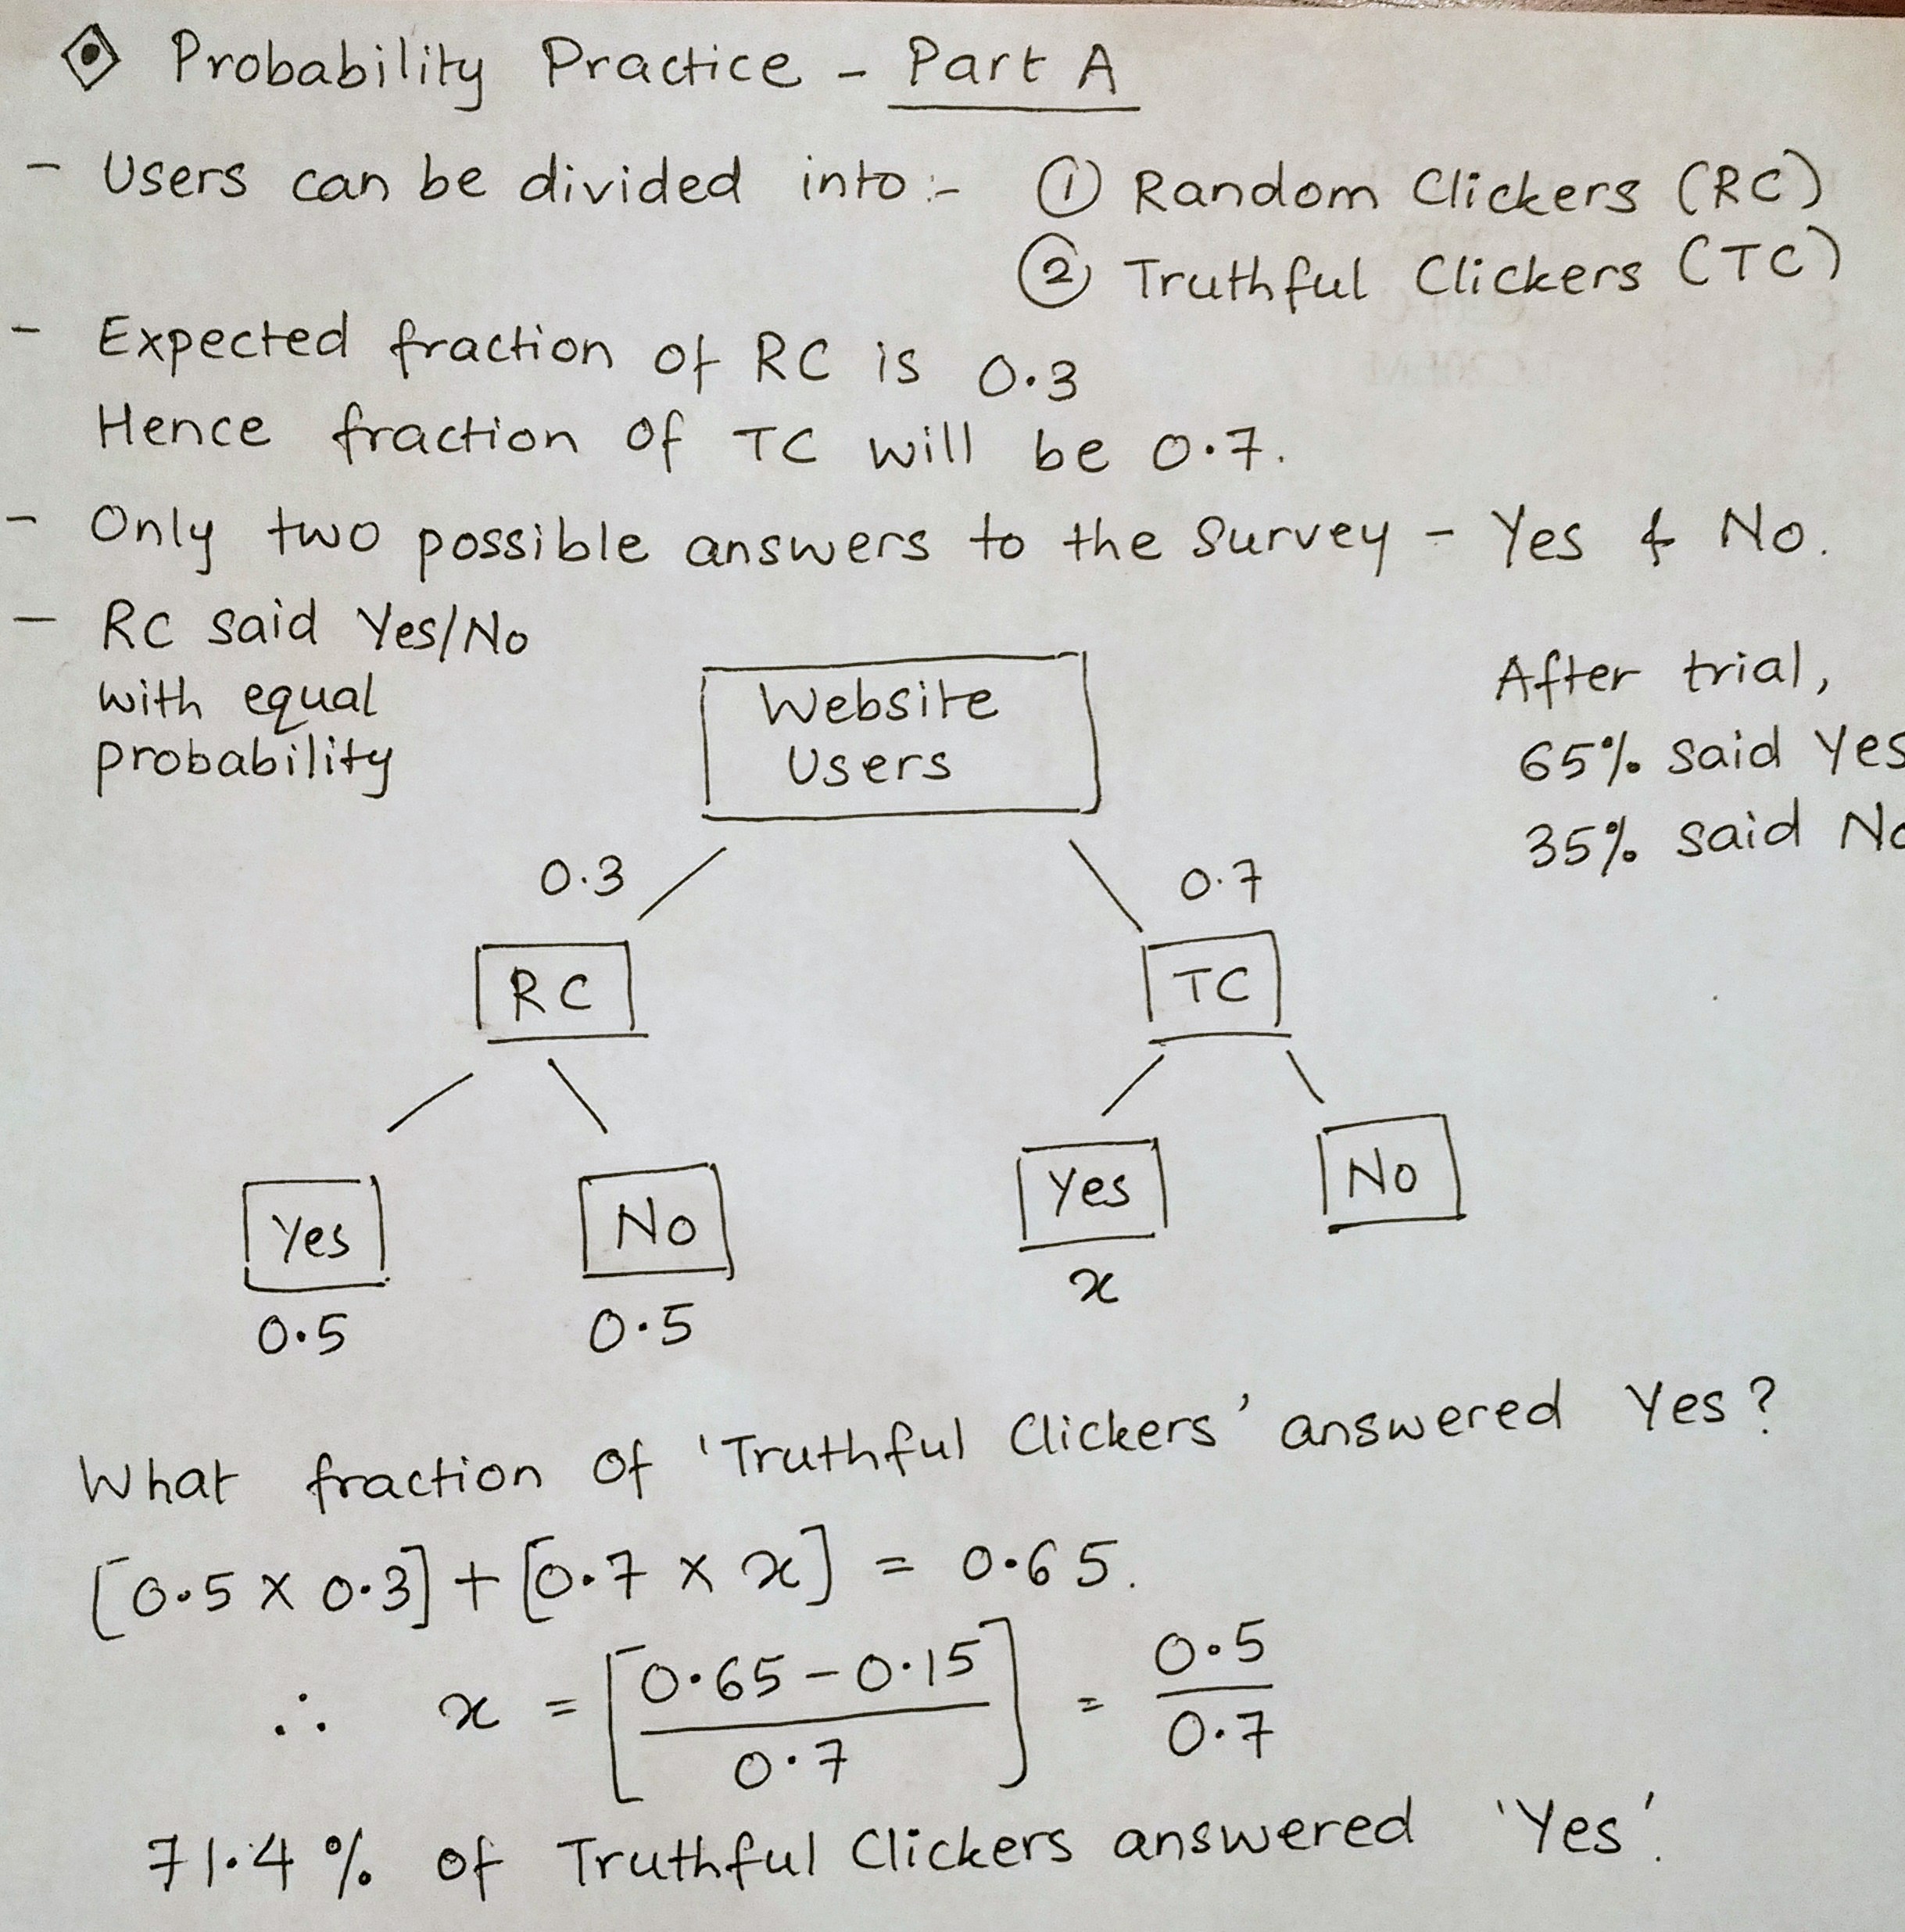 Probability Practice - Part A
- Users can be divided into:- ① Random Clickers (RC)
② Truthful Clickers (TC)
- Expected fraction of RC is 0.3
Hence fraction of TC will be 0.7.
- Only two possible answers to the Survey - Yes & No.
- RC said Yes/No
with equal
probability
Website
Users
After trial,
65% said Yes
35% said No
0.3
0.7
RC
TC
Yes
No
Yes
No
0.5
0.5
x
What fraction of 'Truthful Clickers' answered Yes?
[0.5 x 0.3] + [0.7 x x] = 0.65.
∴ x = [0.65 - 0.15 / 0.7] = 0.5 / 0.7
71.4% of Truthful Clickers answered 'Yes'.